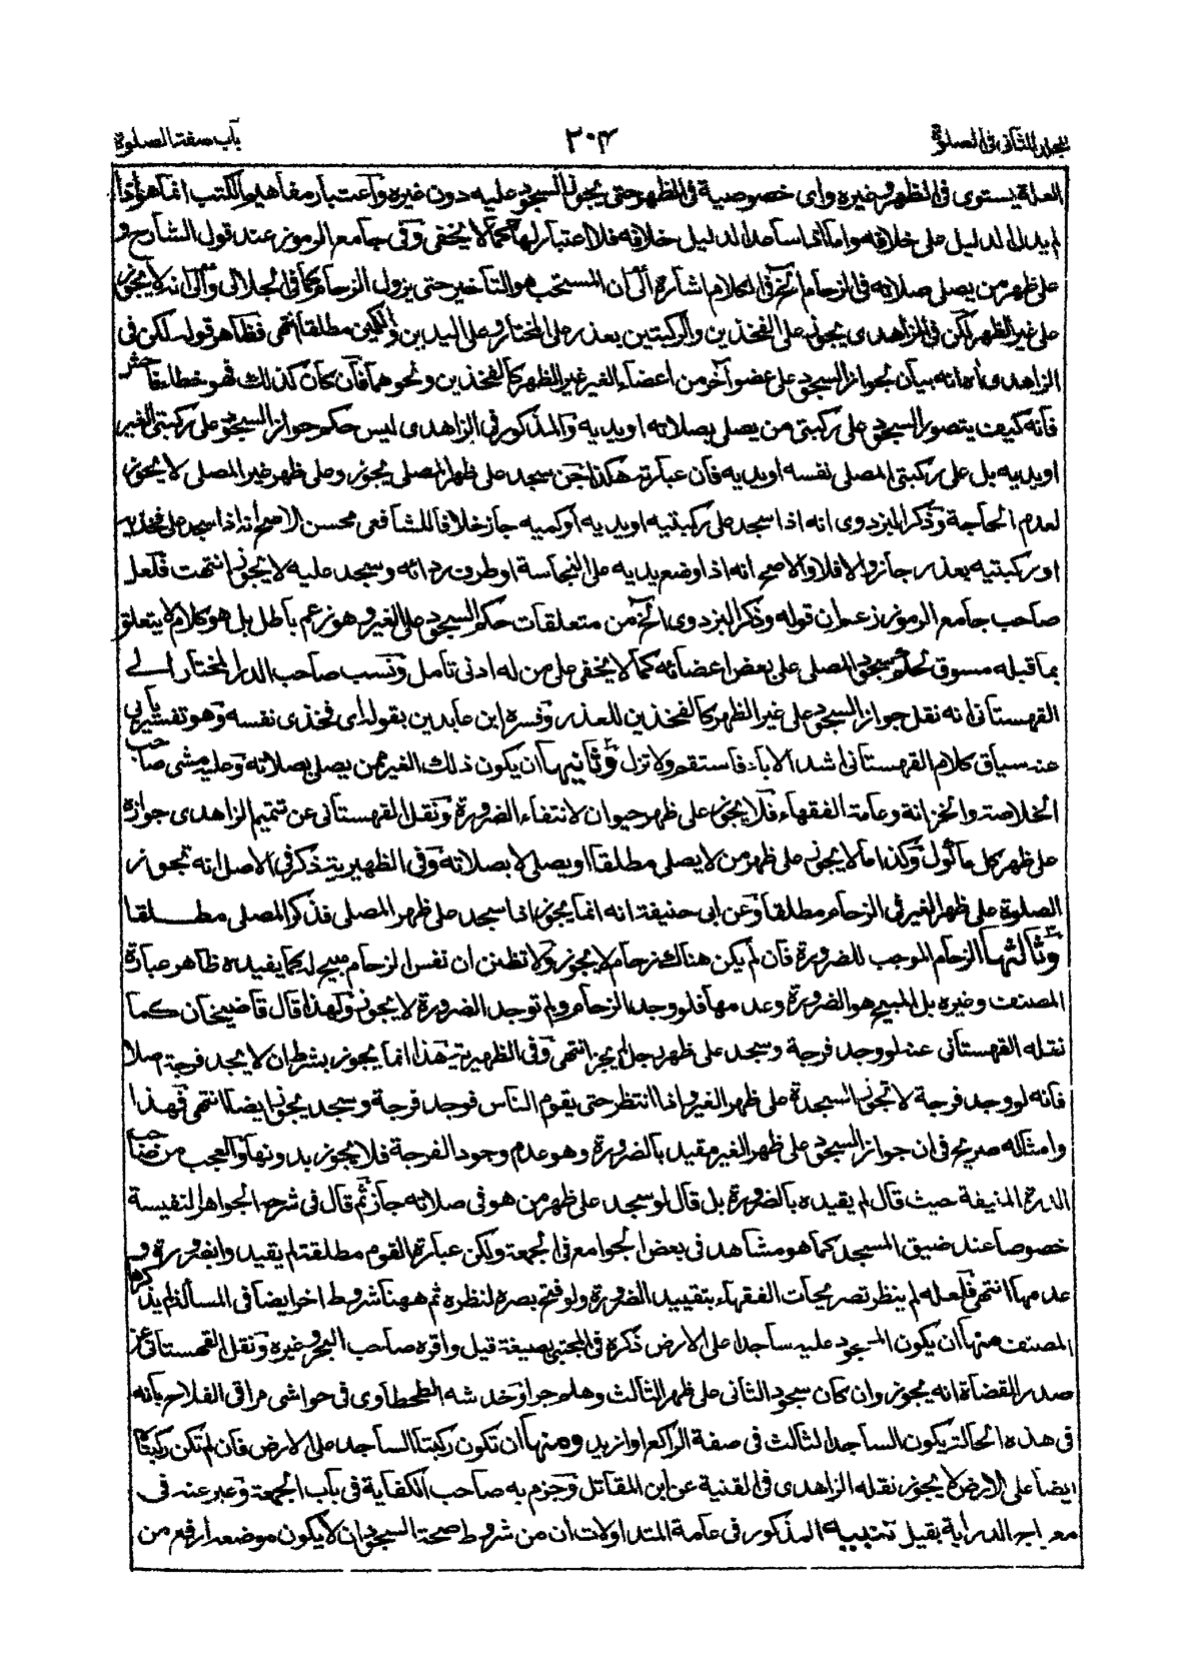 المجلد الثاني في الصلوة ٣٠٤ باب صفة الصلوة
العلة يستوى فى الظهر وغيره واى خصوصية فى الظهر حتى يجوز السجود عليه دون غيره واعتبار مفاهيم الكتب انما هو اذا
لم يدل الدليل على خلافه واما اذا ساعد الدليل خلافه فلا اعتبار لها كما لا يخفى وفى جامع الرموز عند قول الشارح و
على ظهر من يصلى صلاته فى الزحام الخ فى الكلام اشارة الى ان المستحب هو التأخير حتى يزول الزحام كما فى الجلابى والى انه لا يجوز
على غير الظهر لكن فى الزاهدى يجوز على الفخذين والركبتين بعذر على المختار وعلى اليدين والكمين مطلقا انتهى فظاهر قوله لكن فى
الزاهدى اه انه بيان لجواز السجود على عضو آخر من اعضاء الغير غير الظهر كالفخذين ونحوهما فان كان كذلك فهو خطاء فاحش
فانه كيف يتصور السجود على ركبتى من يصلى بصلاته او يديه والمذكور فى الزاهدى ليس حكم جواز السجود على ركبتى الغير
او يديه بل على ركبتى المصلى نفسه او يديه فان عبارته هكذا سجد على ظهر المصلى يجوز وعلى ظهر غير المصلى لا يجوز
لعدم الحاجة وذكر البزدوى انه اذا سجد على ركبتيه او يديه او كميه جاز خلافا للشافعى محسن الاصح انه اذا سجد على فخذيه
او ركبتيه بعذر جاز والا فلا والاصح انه اذا وضع يديه على النجاسة او طرف ردائه وسجد عليه لا يجوز انتهت فلعل
صاحب جامع الرموز زعم ان قوله وذكر البزدوى الخ من متعلقات حكم السجود على الغير وهو زعم باطل بل هو كلام لا يتعلق
بما قبله مسوق لحكم سجود المصلى على بعض اعضائه كما لا يخفى على من له ادنى تامل ونسب صاحب الدر المختار الى
القهستانى انه نقل جواز السجود على غير الظهر كالفخذين للعذر وفسره ابن عابدين بقوله اى فخذى نفسه وهو تفسير يابى
عنه سياق كلام القهستانى اشد الاباء فاستقم ولا تزل وثانيها ان يكون ذلك الغير ممن يصلى بصلاته وعليه مشى صاحب
الخلاصة والخزانة وعامة الفقهاء فلا يجوز على ظهر حيوان لانتفاء الضرورة ونقل القهستانى عن تتميم الزاهدى جوازه
على ظهر كل مأكول وكذا ما لا يجوز على ظهر من لا يصلى مطلقا او يصلى لا بصلاته وفى الظهيرية ذكر فى الاصل انه تجوز
الصلوة على ظهر الغير فى الزحام مطلقا وعن ابى حنيفة انه انما يجوز اذا سجد على ظهر المصلى فذكر المصلى مطلقا
وثالثها الزحام الموجب للضرورة فان لم يكن هناك زحام لا يجوز ولا تظنن ان نفس الزحام مبيح له كما يفيده ظاهر عبارة
المصنف وغيره بل المبيح هو الضرورة وعدمها فلو وجد الزحام ولم توجد الضرورة لا يجوز ولهذا قال قاضيخان كما
نقله القهستانى عنه لو وجد فرجة وسجد على ظهر رجل لم يجز انتهى وفى الظهيرية هذا انما يجوز بشرط ان لا يجد فرجة اصلا
فانه لو وجد فرجة لا تجوز السجدة على ظهر الغير واذا انتظر حتى يقوم الناس فوجد فرجة وسجد يجوز ايضا انتهى فهذا
وامثاله صريح فى ان جواز السجود على ظهر الغير مقيد بالضرورة وهو عدم وجود الفرجة فلا يجوز بدونها والعجب من صاحب
الدرة المنيفة حيث قال لم يقيده بالضرورة بل قال لو سجد على ظهر من هو فى صلاته جاز ثم قال فى شرح الجواهر النفيسة
خصوصا عند ضيق المسجد كما هو مشاهد فى بعض الجوامع فى الجمعة ولكن عبارة القوم مطلقة لم يقيدوا بضرورة و
عدمها انتهى فلعله لم ينظر تصريحات الفقهاء بتقييد الضرورة ولو فتح بصره لنظره ثم ههنا شروط اخر ايضا فى المسألة لم يذكرها
المصنف منها ان يكون المسجود عليه ساجدا على الارض ذكره فى المجتبى بصيغة قيل واقره صاحب البحر وغيره ونقل القهستانى عن
صدر القضاة انه يجوز وان كان سجود الثانى على ظهر الثالث وهلم جرا وخدشه الطحطاوى فى حواشى مراقى الفلاح بانه
فى هذه الحالة يكون الساجد الثالث فى صفة الراكع او ازيد ومنها ان تكون ركبتا الساجد على الارض فان لم تكن ركبتاه
ايضا على الارض لا يجوز نقله الزاهدى فى القنية عن ابن المقاتل وجزم به صاحب الكفاية فى باب الجمعة وعبر عنه فى
معراج الدراية بقيل تنبيه المذكور فى عامة المتداولات ان من شروط صحة السجود ان لا يكون موضعه ارفع من